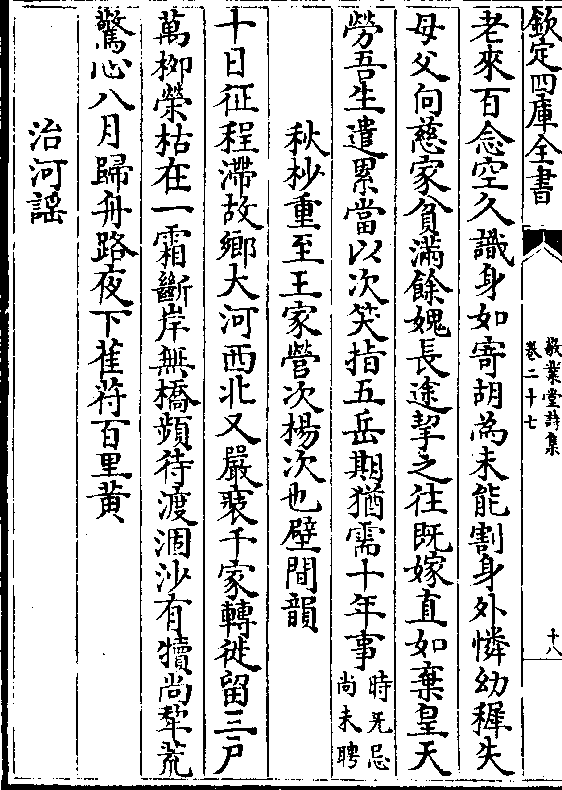 欽定四庫全書
敬業堂詩集
卷二十七
十八
老來百念空久識身如寄胡為未能割身外憐幼穉失
母父向慈家貧滿餘媿長途挈之往既嫁直如棄皇天
勞吾生遣累當以次笑指五岳期猶需十年事時旡忌
尚未聘
秋杪重至王家營次楊次也壁間韻
十日征程滯故鄉大河西北又嚴裝千家轉徙留三戸
萬栁榮枯在一霜斷岸無橋頻待渡涸沙有犢尚犂荒
驚心八月歸舟路夜下萑苻百里黃
治河謡